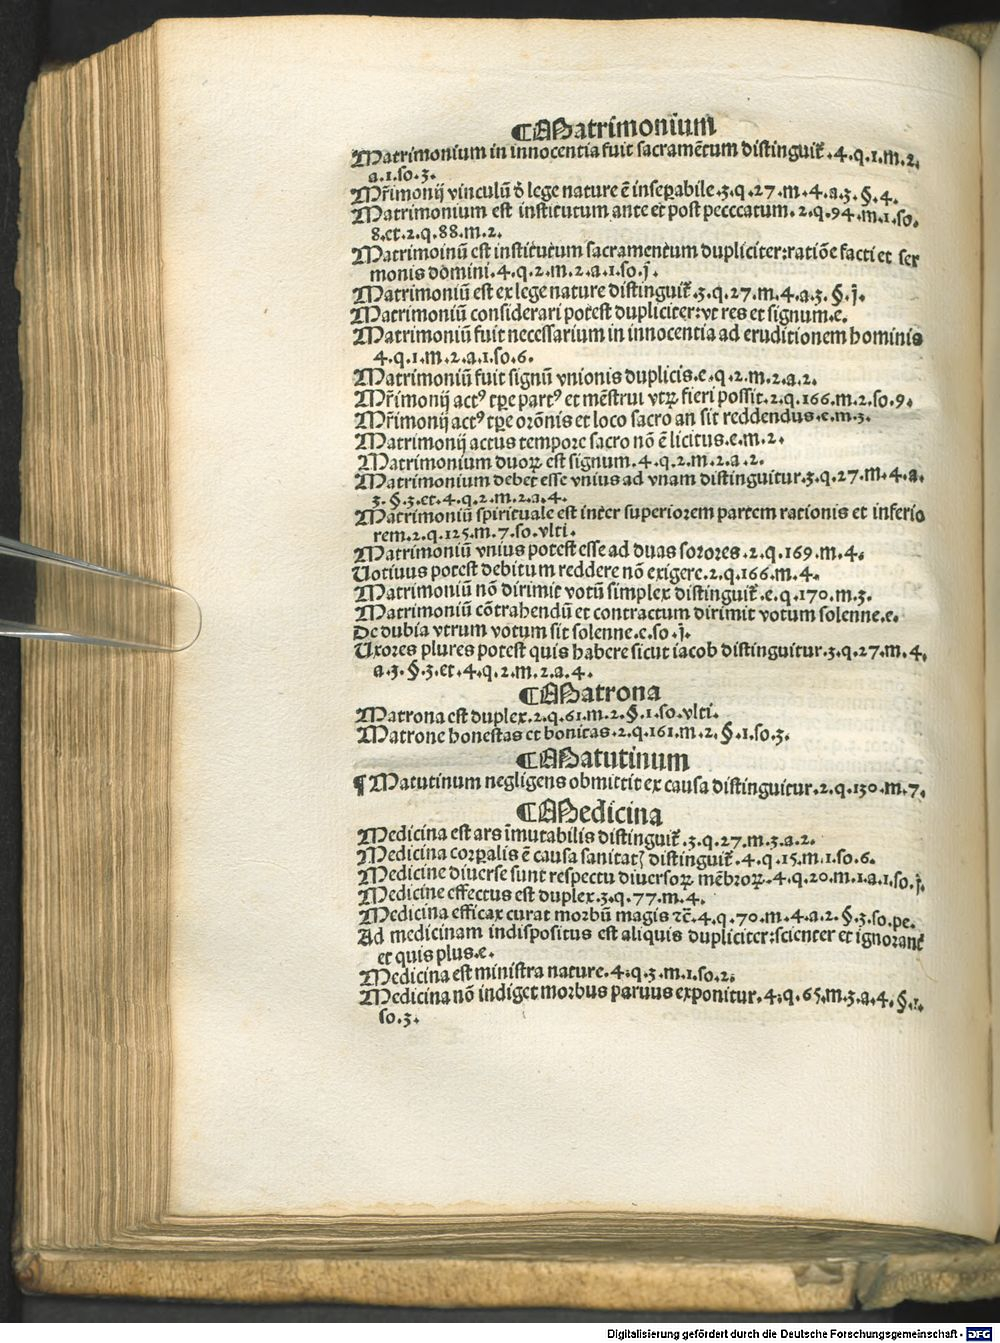 ¶Matrimonium
Matrimonium in innocentia fuit sacramētum distinguit᷑.4.q.1.m.2.
a.1.so.3.
Mr̄imonij vinculū ď lege nature ē insepabile.3.q.27.m.4.a.3.§.4.
Matrimonium est institutum ante et post pecccatum.2.q.94.m.1.so.
8.et.2.q.88.m.2.
Matrimoinū est institutum sacramentum dupliciter:ratiōe facti et ser
monis domini.4.q.2.m.2.a.1.so.j.
Matrimoniū est ex lege nature distinguit᷑.3.q.27.m.4.a.3.§.j.
Matrimoniū considerari potest dupliciter:vt res et signum.e.
Matrimoniū fuit necessarium in innocentia ad eruditionem hominis
4.q.1.m.2.a.1.so.6.
Matrimoniū fuit signū vnionis duplicis.e.q.2.m.2.a.2.
Mr̄imonij actꝰ tꝑe partꝰ et mēstrui vtꝝ fieri possit.2.q.166.m.2.so.9.
Mr̄imonij actꝰ tꝑe orōnis et loco sacro an sit reddendus.e.m.3.
Matrimonij actus tempore sacro nō ē licitus.e.m.2.
Matrimonium duoꝝ est signum.4.q.2.m.2.a.2.
Matrimonium debet esse vnius ad vnam distinguitur.3.q.27.m.4.a.
3.§.3.et.4.q.2.m.2.a.4.
Matrimoniū spirituale est inter superiorem partem rationis et inferio
rem.2.q.125.m.7.so.vlti.
Matrimoniū vnius potest esse ad duas sorores.2.q.169.m.4.
Votiuus potest debitum reddere nō exigere.2.q.166.m.4.
Matrimoniū nō dirimit votū simplex distinguit᷑.e.q.170.m.3.
Matrimoniū cōtrahendū et contractum dirimit votum solenne.e.
De dubia vtrum votum sit solenne.e.so.j.
Uxores plures potest quis habere sicut iacob distinguitur.3.q.27.m.4.
a.3.§.3.et.4.q.2.m.2.a.4.
¶Matrona
Matrona est duplex.2.q.61.m.2.§.1.so.vlti.
Matrone honestas et bonitas.2.q.161.m.2.§.1.so.3.
¶Matutinum
¶Matutinum negligens obmittit ex causa distinguitur.2.q.130.m.7.
¶Medicina
Medicina est ars īmutabilis distinguit᷑.3.q.27.m.3.a.2.
Medicina corꝑalis ē causa sanitatꝭ distinguit᷑.4.q.15.m.1.so.6.
Medicine diuerse sunt respectu diuersoꝝ mēbroꝝ.4.q.20.m.1.a.1.so.j.
Medicine effectus est duplex.3.q.77.m.4.
Medicina efficax curat morbū magis ⁊c̄.4.q.70.m.4.a.2.§.3.so.pe.
Ad medicinam indispositus est aliquis dupliciter:scienter et ignorant᷑
et quis plus.e.
Medicina est ministra nature.4.q.3.m.1.so.2.
Medicina nō indiget morbus paruus exponitur.4.q.65.m.3.a.4.§.1.
so.3.
Digitalisierung gefördert durch die Deutsche Forschungsgemeinschaft - DFG